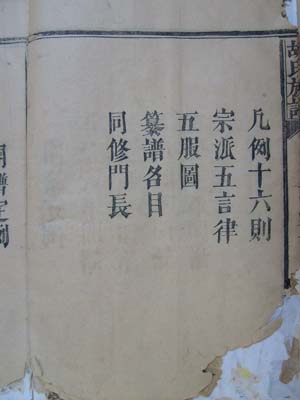 胡氏族譜
凡例十六則
宗派五言律
五服圖
纂譜名目
同修門長